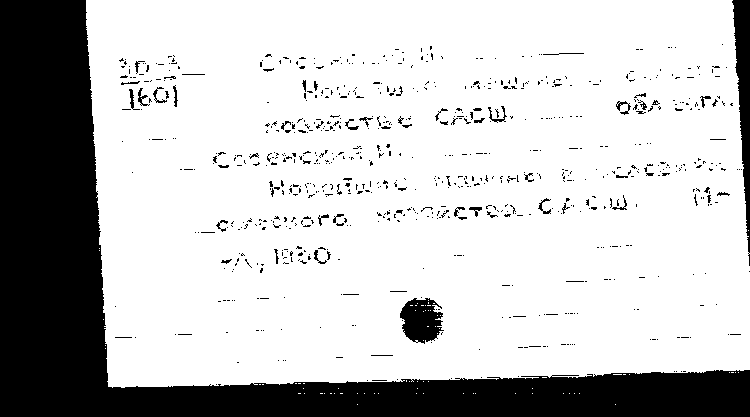 3D-3
1601
Сосенский, И.
Новейшие машины в сельск
хозяйстве САСШ. обл загл.
Сосенский, И.
Новейшие машины в
сельского хозяйства С.А.С.Ш. М-
-Л, 1930.